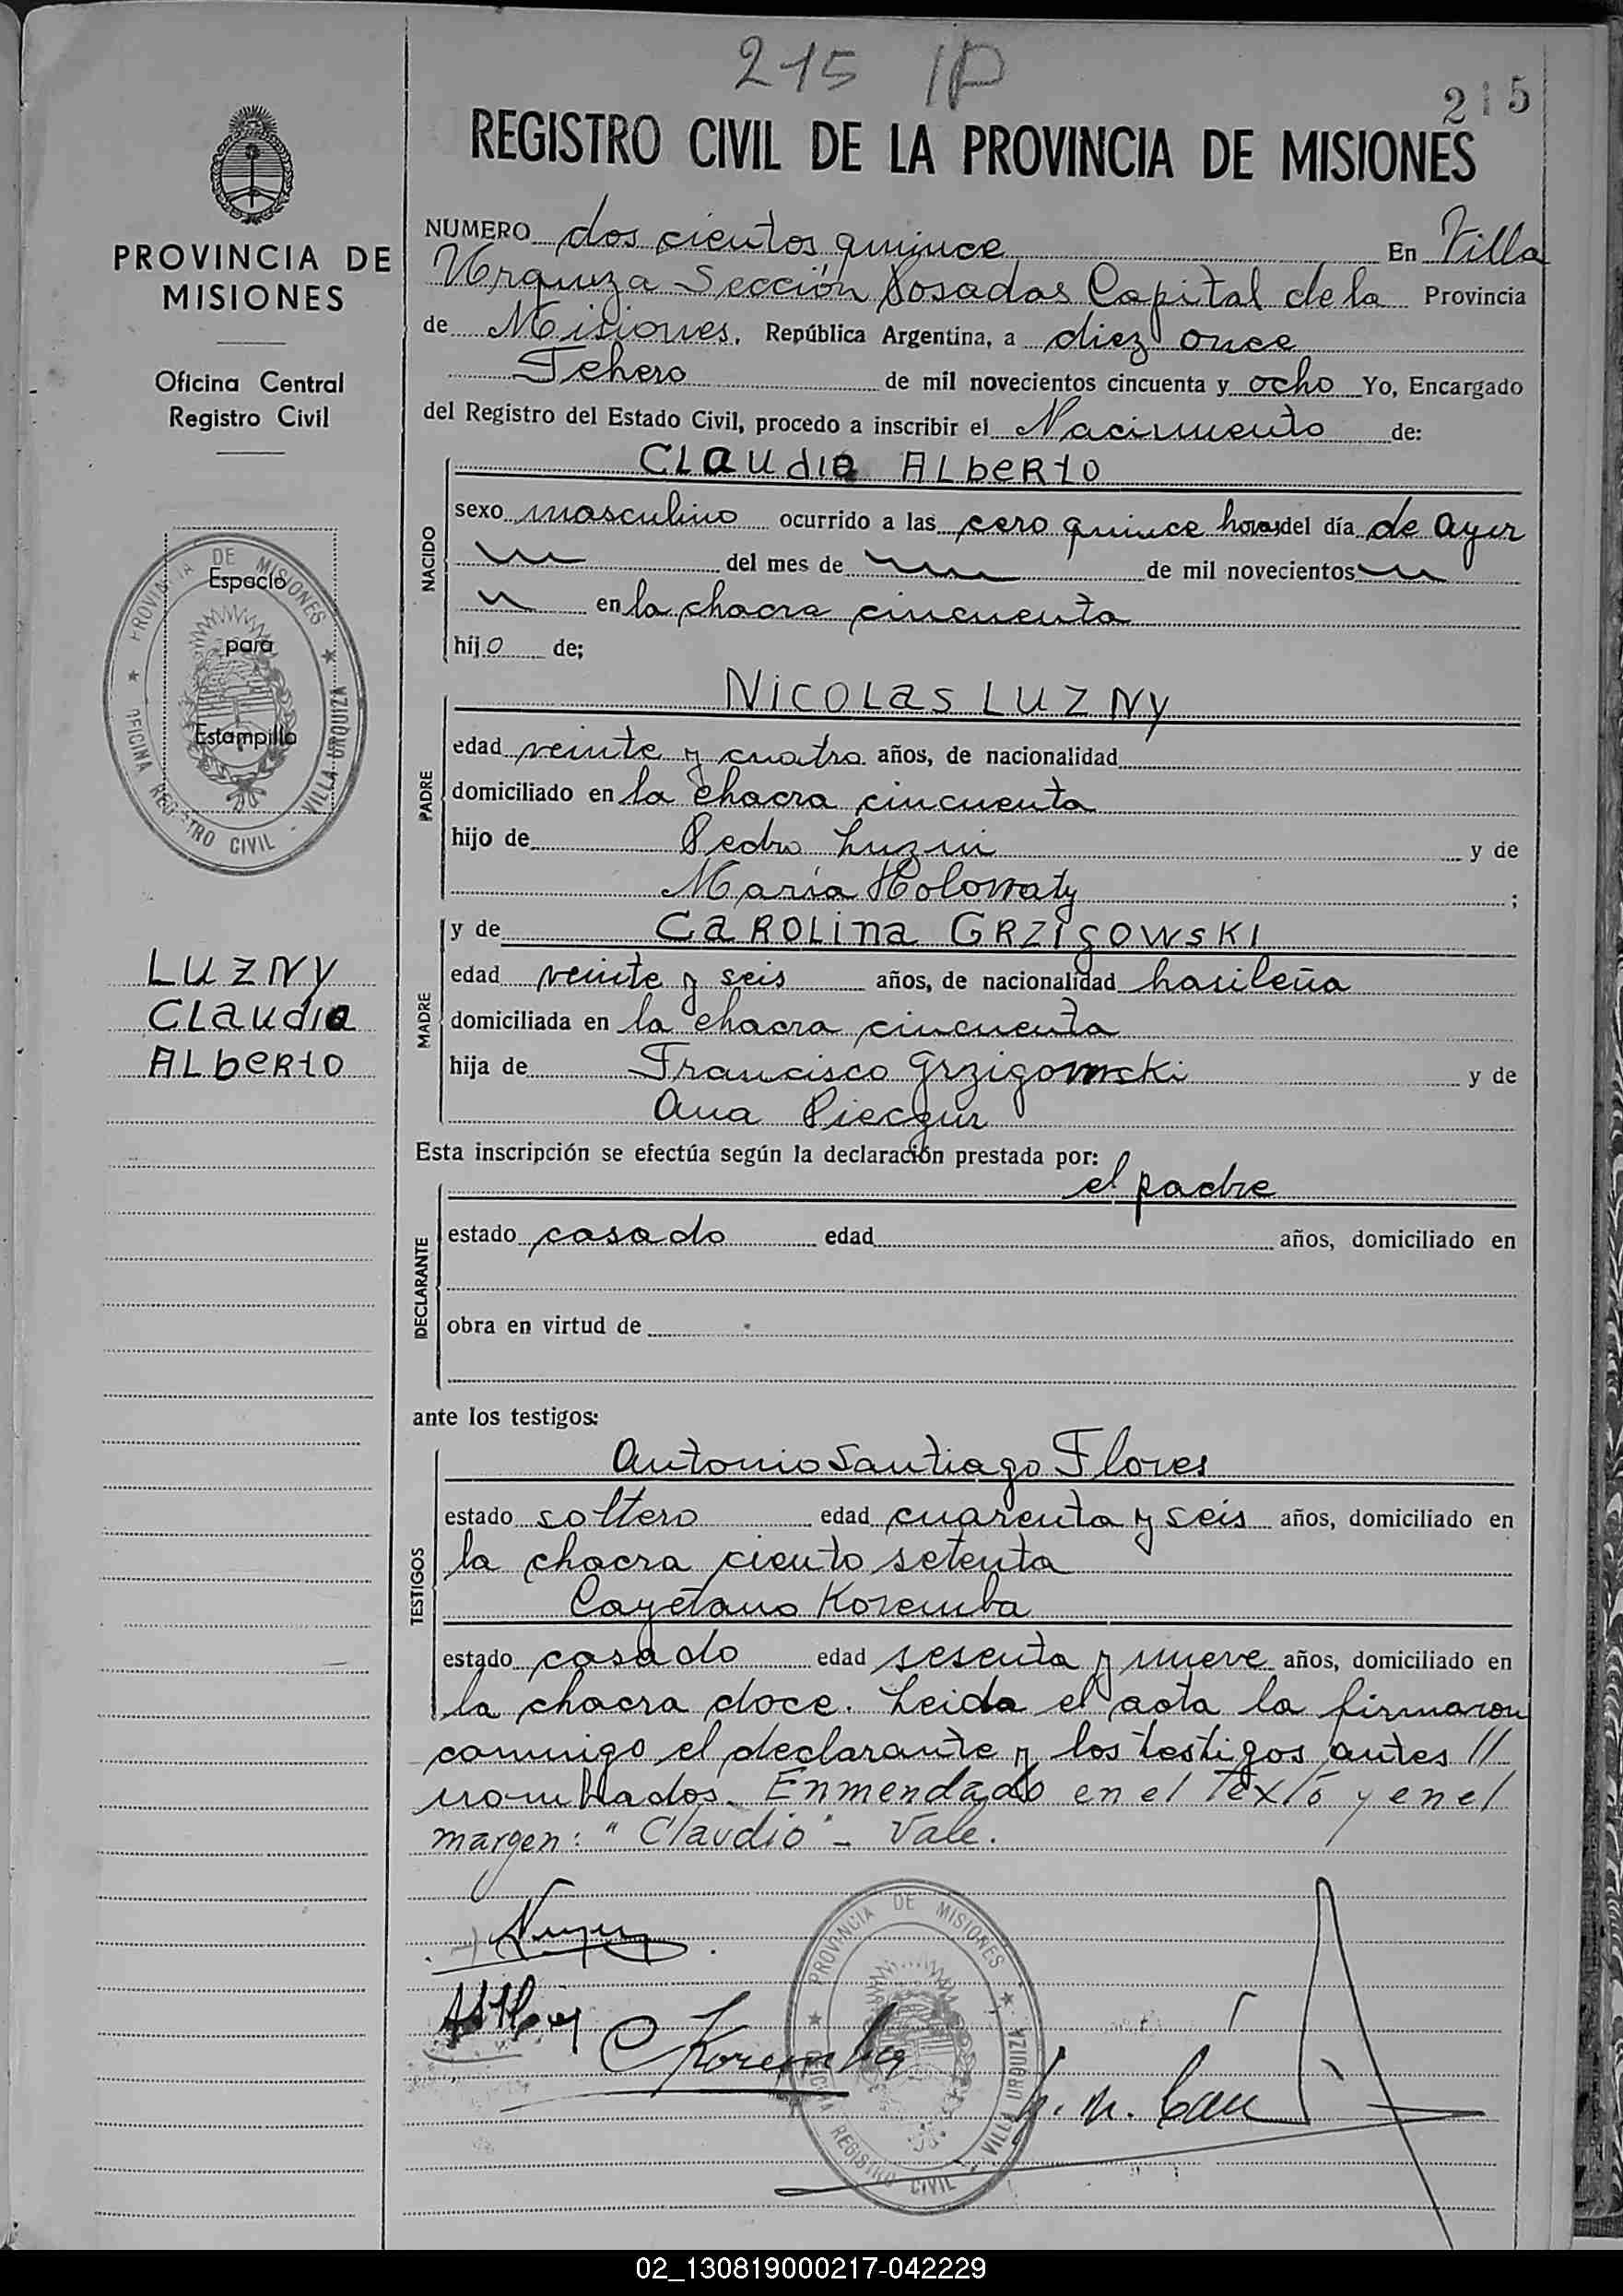 215 1P
215
REGISTRO CIVIL DE LA PROVINCIA DE MISIONES
PROVINCIA DE
MISIONES
Oficina Central
Registro Civil
PROVINCIA DE MISIONES
OFICINA REGISTRO CIVIL - VILLA URQUIZA
Espacio
para
Estampilla
LUZNY
CLaudio
ALbeRtO
NUMERO dos cientos quince En Villa
Urquiza Sección Posadas Capital de la Provincia
de Misiones, República Argentina, a diez once
Febero de mil novecientos cincuenta y ocho Yo, Encargado
del Registro del Estado Civil, procedo a inscribir el Nacimiento de:
NACIDO
CLaudio ALbeRtO
sexo masculino ocurrido a las cero quince horas del día de ayer
del mes de de mil novecientos
en la chacra cincuenta
hijo de;
PADRE
NicoLas LUZNy
edad veinte y cuatro años, de nacionalidad
domiciliado en la chacra cincuenta
hijo de Pedro Luzni y de
María Holowaty ;
MADRE
y de CaROLina GRZIGOWSKI
edad veinte y seis años, de nacionalidad brasileña
domiciliada en la chacra cincuenta
hija de Francisco Grzigowski y de
Ana
Esta inscripción se efectúa según la declaración prestada por:
DECLARANTE
el padre
estado casado edad años, domiciliado en
obra en virtud de
ante los testigos:
TESTIGOS
Antonio Santiago Flores
estado soltero edad cuarenta y seis años, domiciliado en
la chacra ciento setenta
Cayetano Koremba
estado casado edad sesenta y nueve años, domiciliado en
la chacra doce. Leida el acta la firmaron
conmigo el declarante y los testigos antes //
nombrados. Enmendado en el texto y en el
margen: "Claudio" - Vale.
C Koremba
PROVINCIA DE MISIONES
OFICINA REGISTRO CIVIL - VILLA URQUIZA
02_130819000217-042229